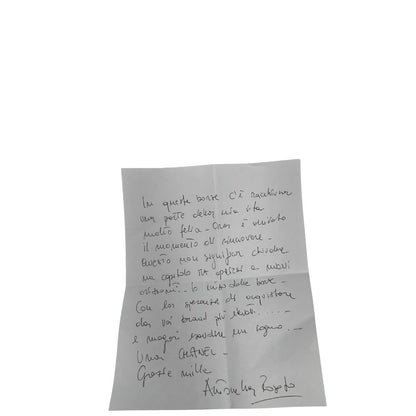 In queste borse c'è racchiusa
una parte della mia vita
molto felice - Ora è arrivato
il momento di rinnovare -
Questo non significa chiudere
ma capitolo ma aprirsi a nuovi
orizzonti - la mia delle borse -
Con la speranza di acquistare
da voi brand più .....-
e magari esaudire un sogno -
Una CHANEL -
Grazie mille
Antonella